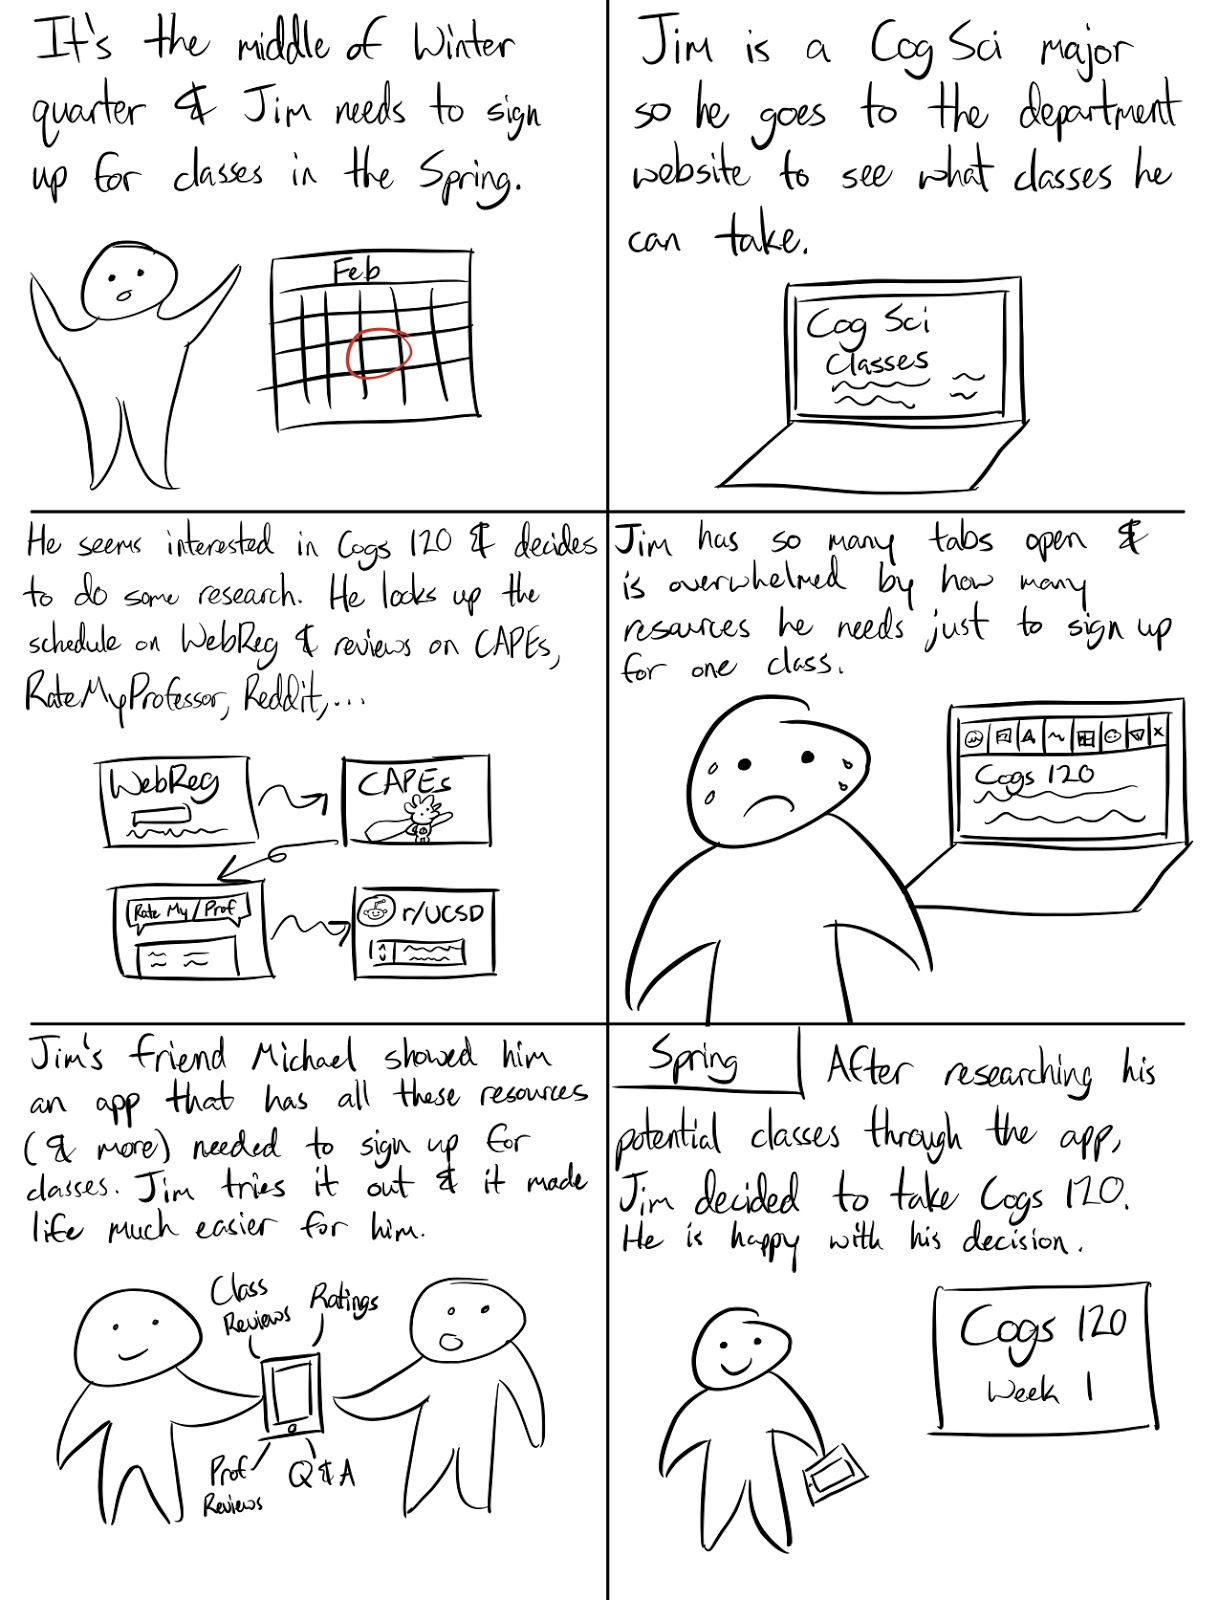 It's the middle of Winter
quarter & Jim needs to sign
up for classes in the Spring.
Feb
Jim is a Cog Sci major
so he goes to the department
website to see what classes he
can take.
Cog Sci
Classes
He seems interested in Cogs 120 & decides
to do some research. He looks up the
schedule on WebReg & reviews on CAPEs,
RateMyProfessor, Reddit,...
WebReg
CAPEs
Rate My Prof
r/UCSD
Jim has so many tabs open &
is overwhelmed by how many
resources he needs just to sign up
for one class.
Cogs 120
Jim's friend Michael showed him
an app that has all these resources
(& more) needed to sign up for
classes. Jim tries it out & it made
life much easier for him.
Class
Reviews
Ratings
Prof
Reviews
Q & A
Spring
After researching his
potential classes through the app,
Jim decided to take Cogs 120.
He is happy with his decision.
Cogs 120
Week 1